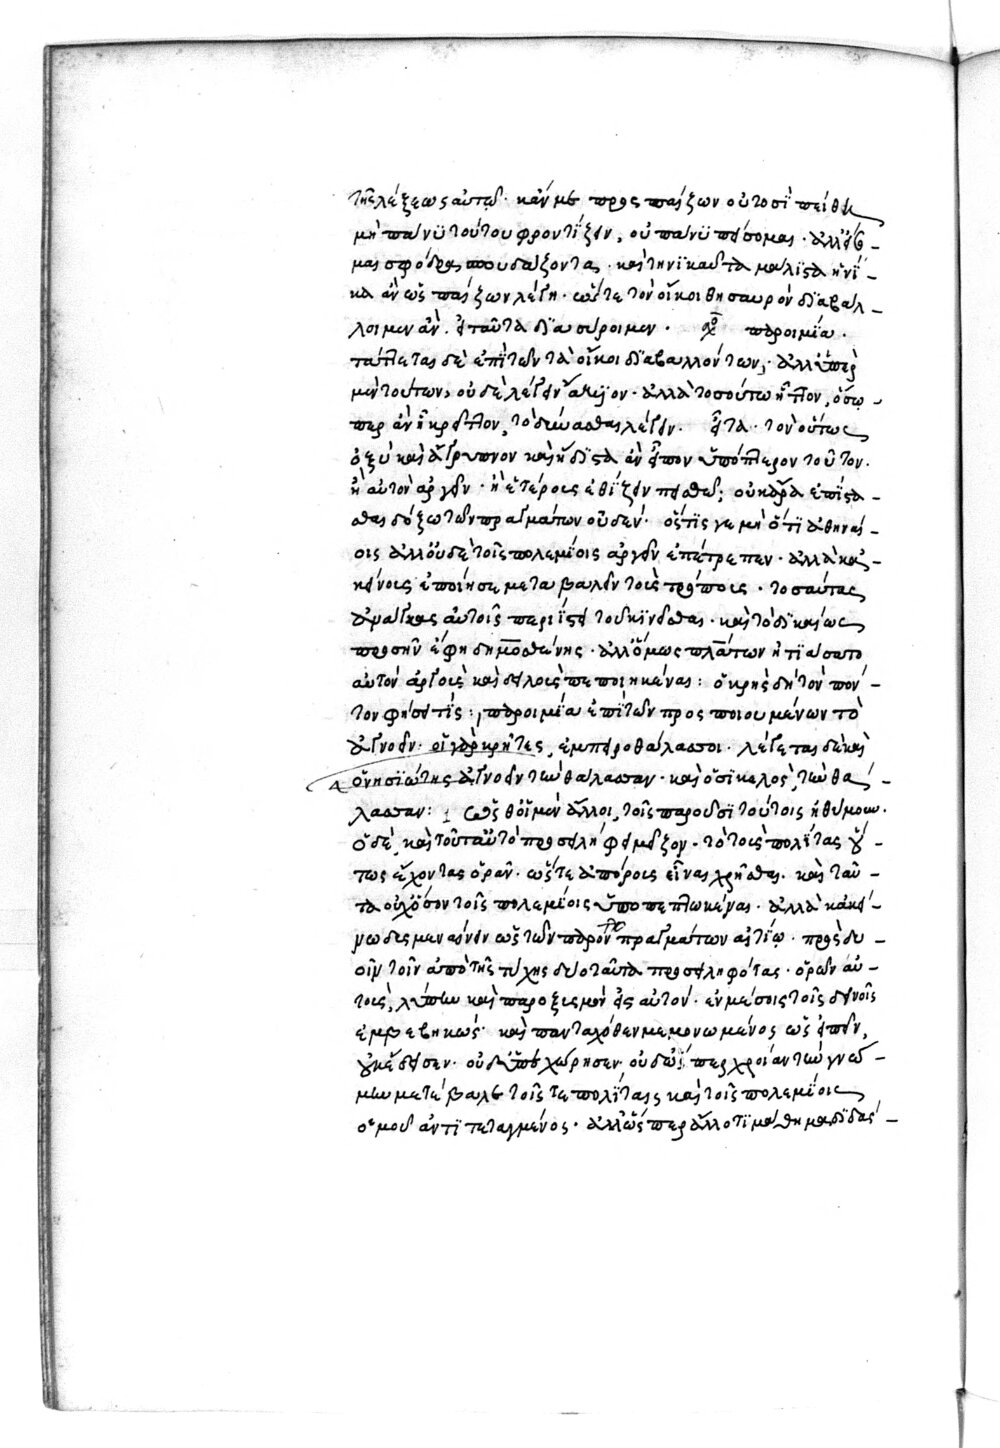 τῆς λέξεως αὐτῶ· κἄν με πρὸς παίζων οὑτοσὶ πείθη
μὴ πάνυ τούτου φροντίζειν, οὐ πάνυ πείσομαι· ἀλλ' εἰ
μαι σφόδρα σπουδάζοντα· καὶ τηνικαῦτα μάλιστα ἡνί-
κα ἂν ὡς παίζων λέγη· ὥστε τὸν οἴκοι θησαυρὸν διαβάλ-
λοιμεν ἄν. εἰ ταῦτα διασύροιμεν· παροιμία·
ταττεται δὲ ἐπὶ τῶν τὰ οἴκοι διαβαλλόντων· ἀλλ' ὑπὲρ
μὲν τούτων, οὐδὲ λέγειν ἄξιον· ἀλλὰ τοσούτω ἧττον, ὅσω-
περ ἂν ἦ κρεῖττον, τὸ σιωπᾶσθαι λέγειν. εἶτα· τὸν οὕτως
ὀξὺ καὶ ἄγρυπνον καὶ ἥδιστα ἂν εἶπον ὑπόπτερον τοῦτον.
ἢ αὐτὸν ἀργεῖν· ἢ ἑτέροις ἐθίζειν ποθεῖ; οὐκ ἄρα ἐπίστα-
σθαι δόξω τῶν πραγμάτων οὐδέν· ὅστις γε μὴ ὅτι ἀθηναί-
οις ἀλλ' οὐδὲ τοῖς πολεμίοις ἀργεῖν ἐπέτρεπεν· ἀλλὰ κα-
κείνοις ἐποίησε μεταβαλεῖν τοὺς τρόπους· τοσαύτας
ἀνάγκας αὐτοῖς περιΐστη τοῦ κινεῖσθαι· καὶ τὸ δικαίως
προσῆν ἔφη δημοσθένης· ἀλλ' ὅμως πλάτων ἠτιάσατο
αὐτὸν ἀργοὺς καὶ δειλοὺς πεποιηκέναι: ὁ κρὴς δὴ τὸν πόν-
τον φησίτις: παροιμία ἐπὶ τῶν προσποιουμένων τὸ
ἀγνοεῖν· οἱ γὰρ κρῆτες, ἐμπειροθάλασσοι· λέγεται δὲ καὶ
ὁ νησιώτης ἀγνοεῖν τὴν θάλασσαν· καὶ ὁ σικελὸς, τὴν θά-
λασσαν: ὡς οἱ μὲν ἄλλοι, τοῖς παροῦσι τούτοις ἠθύμουν.
ὁ δὲ, καὶ τοῦτ' αὐτὸ προσείληφε μεῖζον· τὸ τοὺς πολίτας οὕ-
τως ἔχοντας ὁρᾶν· ὥστε ἀπόρους εἶναι χρῆσθαι. καὶ ταῦ-
τα οὐχ ὅσον τοῖς πολεμίοις ὑποπεπτωκέναι· ἀλλὰ κἀκεί-
νω δυσμεναίνειν ὡς τῶν παρόντων πραγμάτων αἰτίω· πρὸς δυ-
οῖν τοῖν ἀπὸ τῆς τύχης δύο ταῦτα προσειληφότας· ὁρῶν αὐ-
τοὺς, λύπην καὶ παροξυσμὸν εἰς αὐτόν· ἐν μέσοις τοῖς δεινοῖς
ἐμβεβηκώς· καὶ πανταχόθεν μεμονωμένος ὡς εἰπεῖν,
οὐκ ἔδεισεν· οὐδ' ὑπεχώρησεν οὐδ' ὥσπερ χροιὰν τὴν γνώ-
μην μετέβαλε τοῖς τε πολίταις καὶ τοῖς πολεμίοις
ὁμοῦ ἀντιτεταγμένος· ἀλλ' ὥσπερ ἄλλο τι μάθημα διδάσ-